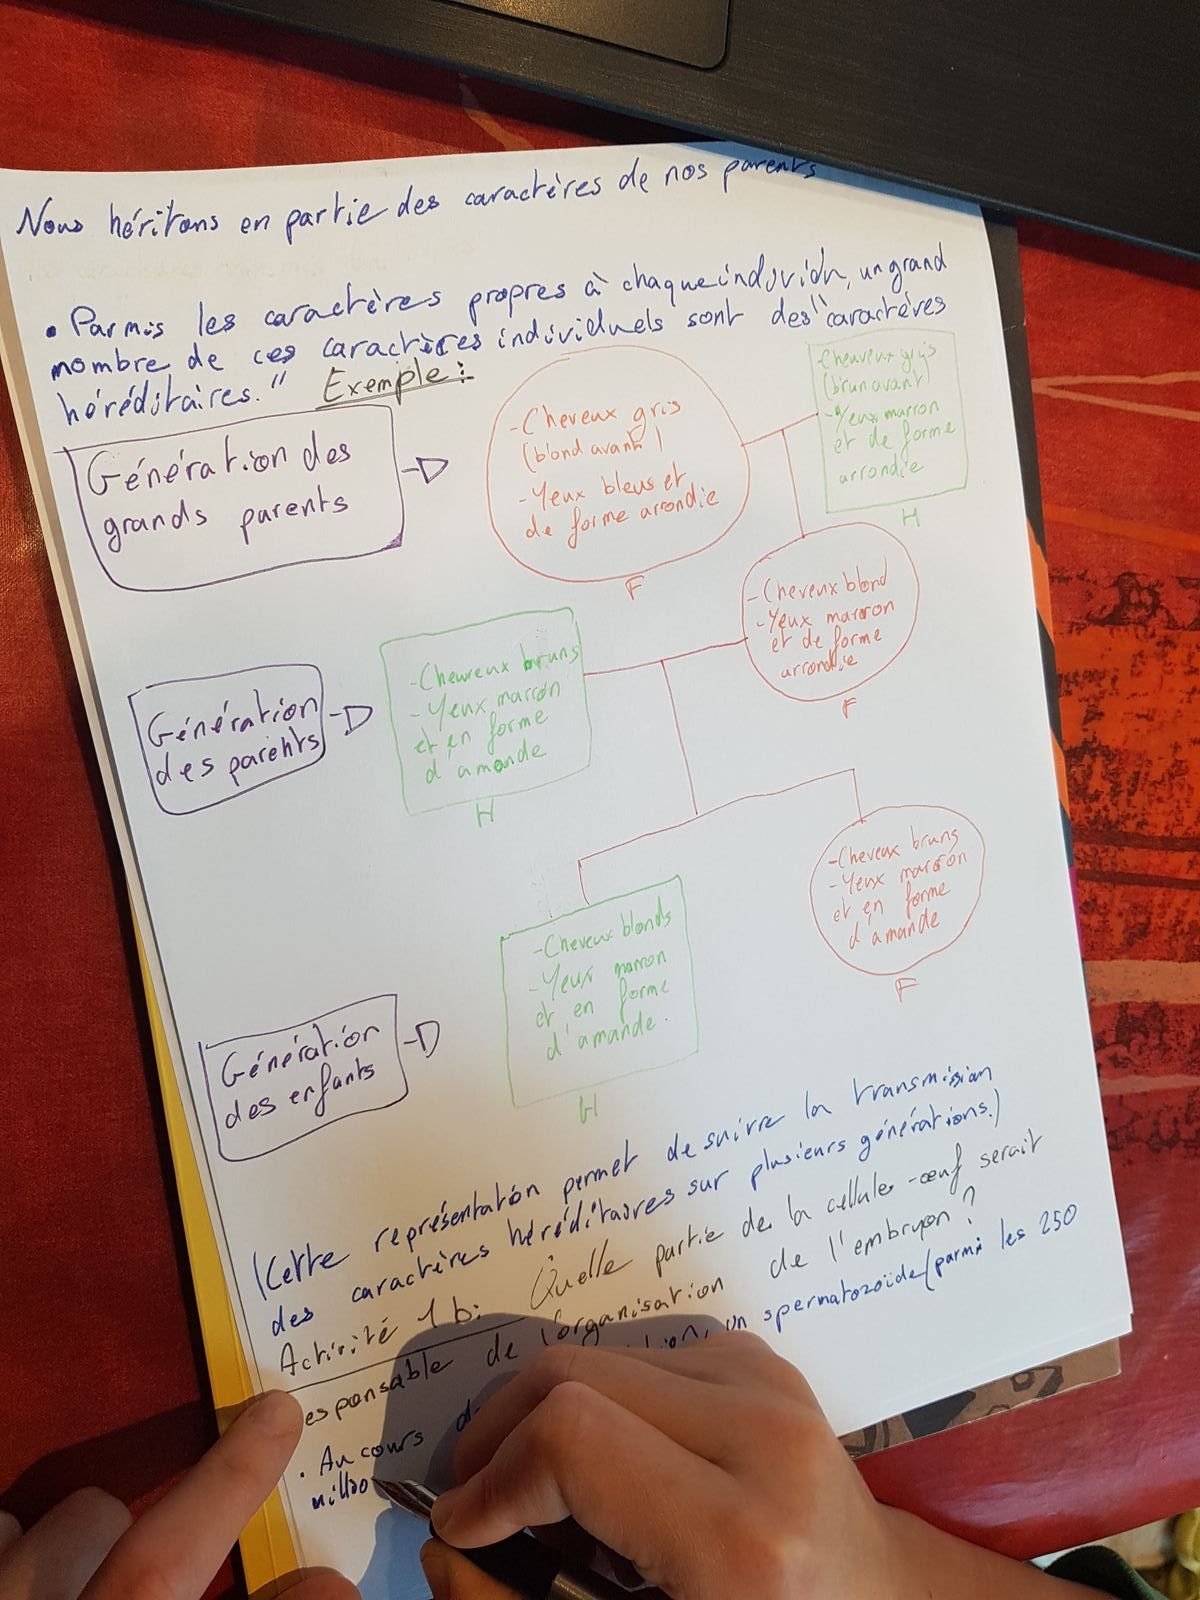 Nous héritons en partie des caractères de nos parents
• Parmis les caractères propres à chaque individu, un grand
nombre de ces caractères individuels sont des "caractères
héréditaires."
Exemple :
Génération des
grands parents
- Cheveux gris
(blond avant)
- Yeux bleus et
de forme arrondie
F
Cheuveux gris
(brun avant)
- Yeux marron
et de forme
arrondie
H
Génération
des parents
- Cheuveux bruns
- Yeux marron
et en forme
d'amande
H
- Cheveux blond
- Yeux marron
et de forme
arrondie
F
Génération
des enfants
- Cheveux blonds
- Yeux marron
et en forme
d'amande.
H
- Cheveux bruns
- Yeux marron
et en forme
d'amande
F
(Cette représentation permet de suivre la transmission
des caractères héréditaires sur plusieurs générations.)
Activité 1b: Quelle partie de la cellule-œuf serait
esponsable de l'organisation de l'embryon ?
• Au cours un spermatozoïde (parmi les 250